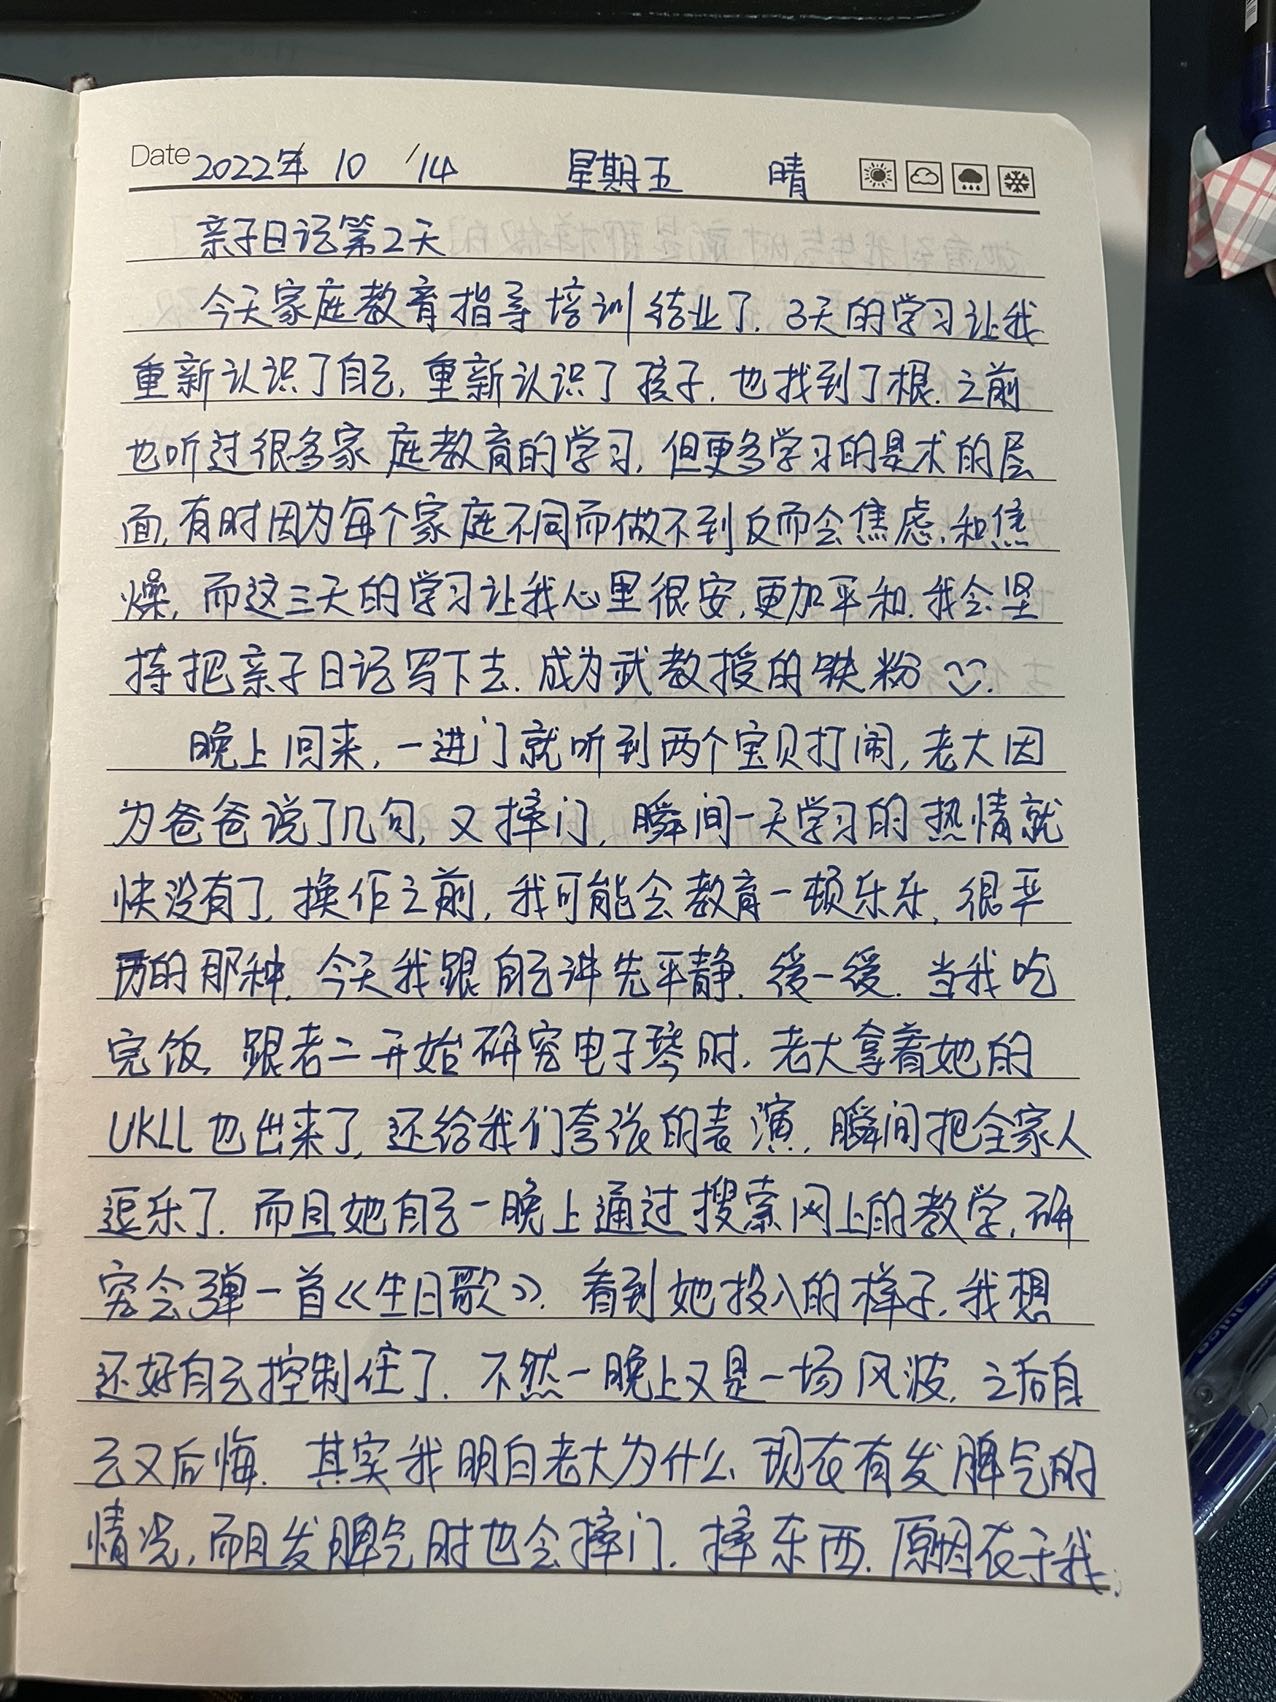 Date 2022年 10/14 星期五 晴
亲子日记第2天
今天家庭教育指导培训结业了.3天的学习让我
重新认识了自己,重新认识了孩子.也找到了根.之前
也听过很多家庭教育的学习,但更多学习的是术的层
面,有时因为每个家庭不同而做不到反而会焦虑.和焦
燥,而这三天的学习让我心里很安,更加平和.我会坚
持把亲子日记写下去.成为武教授的铁粉
晚上回来,一进门就听到两个宝贝打闹,老大因
为爸爸说了几句,又摔门,瞬间一天学习的热情就
快没有了,换作之前,我可能会教育一顿乐乐,很平
的那种,今天我跟自己讲先平静.缓一缓.当我吃
完饭,跟老二开始研究电子琴时,老大拿着她的
UKLL也出来了,还给我们夸张的表演,瞬间把全家人
逗乐了.而且她自己一晚上通过搜索网上的教学,研
究会弹一首《生日歌》.看到她投入的样子,我想
还好自己控制住了.不然一晚上又是一场风波,之后自
己又后悔.其实我明白老大为什么现在有发脾气的
情况,而且发脾气时也会摔门.摔东西.原因在于我.